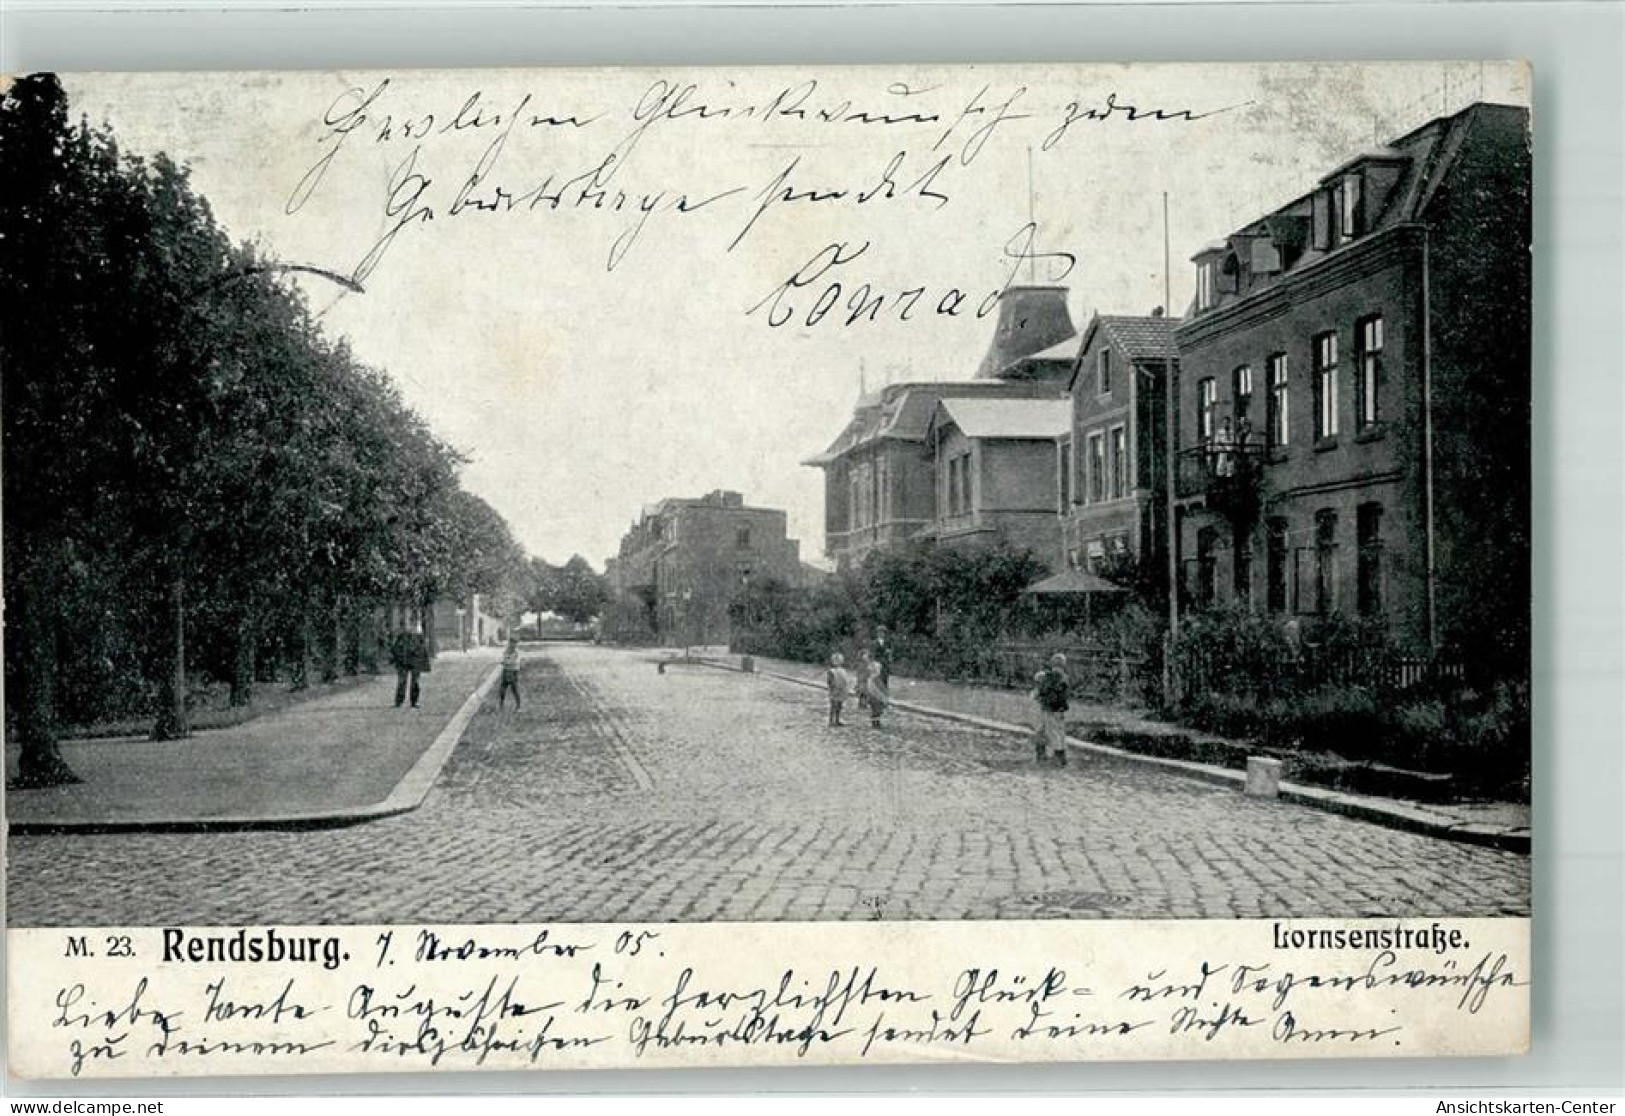 Herzlichen Glückwunsch zum
Geburtstage sendet
Conrad.
M. 23. Rendsburg. 7. November 05.
Lornsenstraße.
Liebe Tante Auguste, die herzlichsten Glück- und Segenswünsche
zu Deinem diesjährigen Geburtstage sendet Deine Nichte Anni.
www.delcampe.net
Ansichtskarten-Center